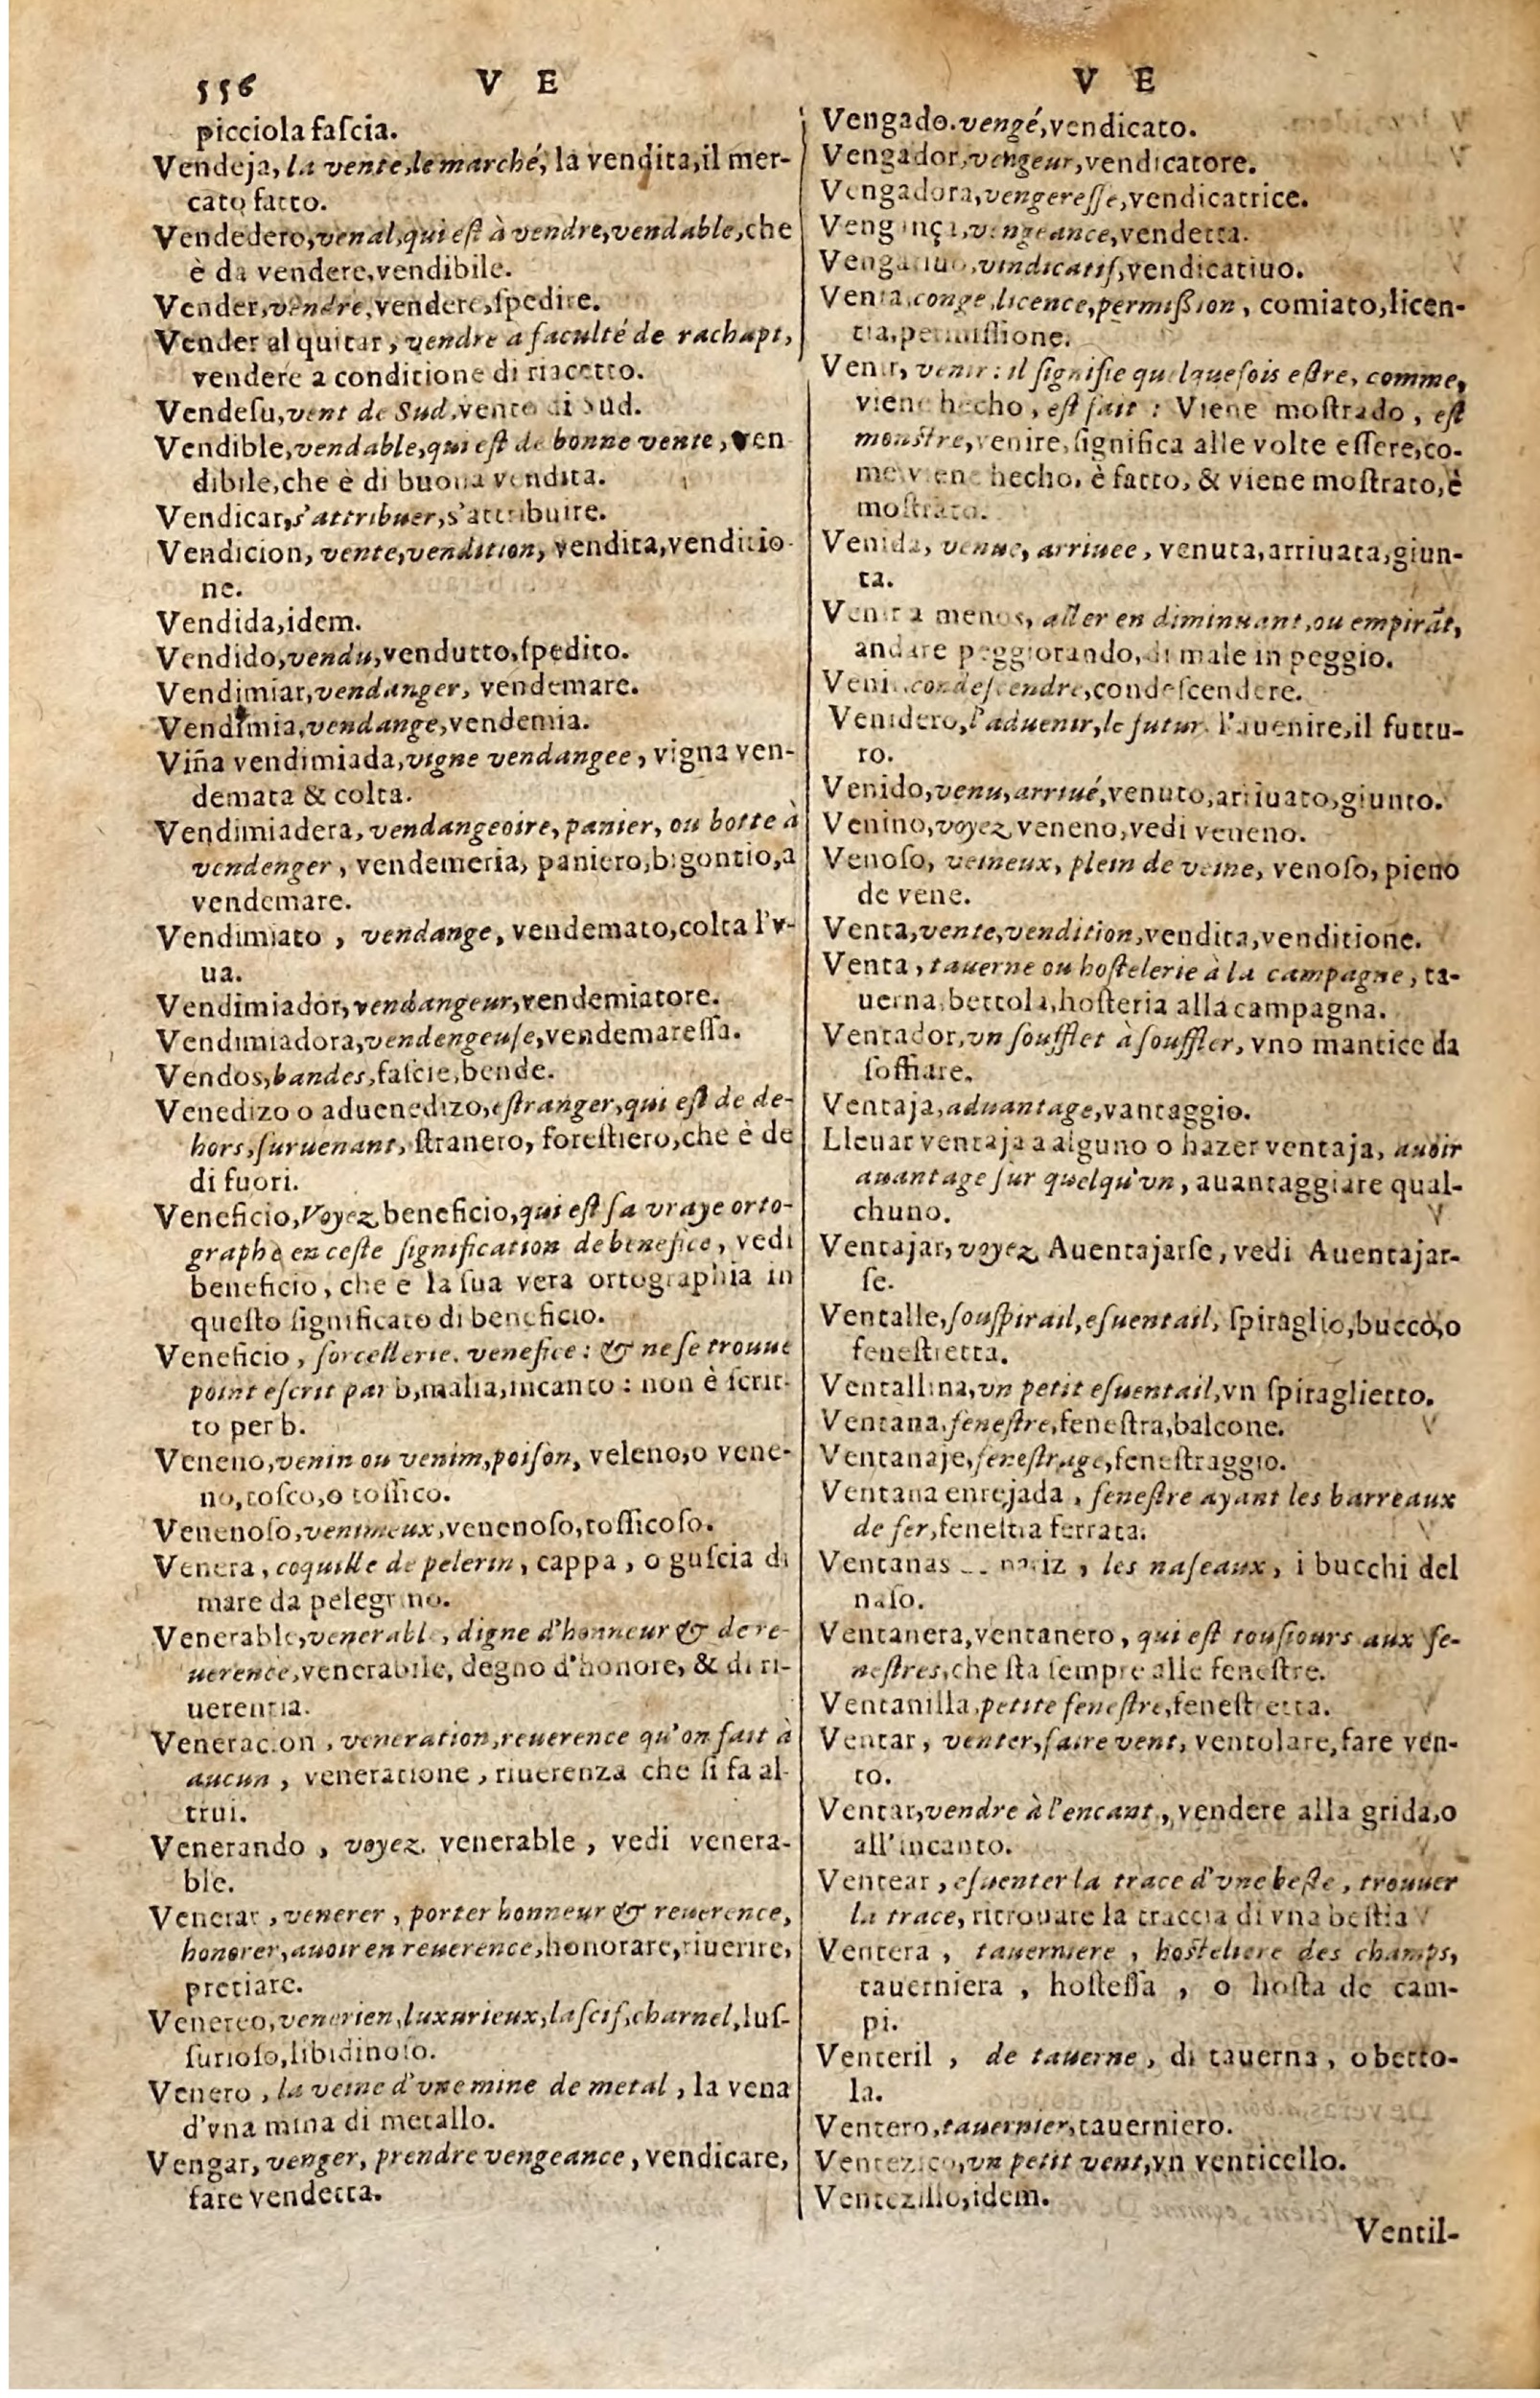 556 V E
picciola faſcia.
Vendeja, la vente, le marché, la vendita, il mer-
cato fatto.
Vendedero, venal, qui eſt à vendre, vendable, che
è da vendere, vendibile.
Vender, vendre, vendere, ſpedire.
Vender al quitar, vendre a faculté de rachapt,
vendere a conditione di riacetto.
Vendeſu, vent de Sud, vento di Sud.
Vendible, vendable, qui eſt de bonne vente, ven
dibile, che è di buona vendita.
Vendicar, s'attribuer, s'attribuire.
Vendicion, vente, vendition, vendita, venditio-
ne.
Vendida, idem.
Vendido, vendu, vendutto, ſpedito.
Vendimiar, vendanger, vendemare.
Vendimia, vendange, vendemia.
Viña vendimiada, vigne vendangee, vigna ven-
demata & colta.
Vendimiadera, vendangeoire, panier, ou botte à
vendenger, vendemeria, paniero, bigontio, a
vendemare.
Vendimiato, vendange, vendemato, colta l'v-
ua.
Vendimiador, vendangeur, vendemiatore.
Vendimiadora, vendengeuſe, vendemareſſa.
Vendos, bandes, faſcie, bende.
Venedizo o aduenedizo, eſtranger, qui eſt de de-
hors, ſuruenant, ſtranero, foreſtiero, che è de
di fuori.
Veneficio, Voyez beneficio, qui eſt ſa vraye orto-
graphe en ceſte ſignification de benefice, vedi
beneficio, che è la ſua vera ortographia in
queſto ſignificato di beneficio.
Veneficio, ſorcellerie, venefice: & ne ſe trouue
point eſcrit par b, malia, incanto: non è ſcrit-
to per b.
Veneno, venin ou venim, poiſon, veleno, o vene-
no, toſco, o toſſico.
Venenoſo, venimeux, venenoſo, toſſicoſo.
Venera, coquille de pelerin, cappa, o guſcia di
mare da pelegrino.
Venerable, venerable, digne d'honneur & de re-
uerence, venerabile, degno d'honore, & di ri-
uerentia.
Veneracion, veneration, reuerence qu'on fait à
aucun, veneratione, riuerenza che ſi fa al-
trui.
Venerando, voyez venerable, vedi venera-
ble.
Venerar, venerer, porter honneur & reuerence,
honorer, auoir en reuerence, honorare, riuerire,
pretiare.
Venereo, venerien, luxurieux, laſcif, charnel, luſ-
ſurioſo, libidinoſo.
Venero, la veine d'vne mine de metal, la vena
d'vna mina di metallo.
Vengar, venger, prendre vengeance, vendicare,
fare vendetta.
V E
Vengado. vengé, vendicato.
Vengador, vengeur, vendicatore.
Vengadora, vengereſſe, vendicatrice.
Vengança, vengeance, vendetta.
Vengatiuo, vindicatif, vendicatiuo.
Venia, conge, licence, permiſſion, comiato, licen-
tia, permiſſione.
Venir, venir: il ſignifie quelqueſois eſtre, comme,
viene hecho, eſt fait: Viene moſtrado, eſt
monſtre, venire, ſignifica alle volte eſſere, co-
me viene hecho, è fatto, & viene moſtrato, è
moſtrato.
Venida, venue, arriuee, venuta, arriuata, giun-
ta.
Venir a menos, aller en diminuant, ou empirãt,
andare peggiorando, di male in peggio.
Veni condeſcendre, condeſcendere.
Venidero, l'aduenir, le futur. l'auenire, il futtu-
ro.
Venido, venu, arriué, venuto, arriuato, giunto.
Venino, voyez veneno, vedi veneno.
Venoſo, veineux, plein de veine, venoſo, pieno
de vene.
Venta, vente, vendition, vendita, venditione.
Venta, tauerne ou hoſtelerie à la campagne, ta-
uerna, bettola, hoſteria alla campagna.
Ventador, vn ſoufflet à ſouffler, vno mantice da
ſoffiare.
Ventaja, aduantage, vantaggio.
Lleuar ventaja a alguno o hazer ventaja, auoir
auantage ſur quelqu'vn, auantaggiare qual-
chuno.
Ventajar, voyez Auentajarſe, vedi Auentajar-
ſe.
Ventalle, ſouſpirail, eſuentail, ſpiraglio, bucco, o
feneſtretta.
Ventallina, vn petit eſuentail, vn ſpiraglietto.
Ventana, feneſtre, feneſtra, balcone.
Ventanaje, feneſtrage, feneſtraggio.
Ventana enrejada, feneſtre ayant les barreaux
de fer, feneſtra ferrata.
Ventanas nariz, les naſeaux, i bucchi del
naſo.
Ventanera, ventanero, qui eſt touſiours aux fe-
neſtres, che ſta ſempre alle feneſtre.
Ventanilla, petite feneſtre, feneſtretta.
Ventar, venter, faire vent, ventolare, fare ven-
to.
Ventar, vendre à l'encant, vendere alla grida, o
all'incanto.
Ventear, eſuenter la trace d'vne beſte, trouuer
la trace, ritrouare la traccia di vna beſtia
Ventera, tauerniere, hoſteliere des champs,
tauerniera, hoſteſſa, o hoſta de cam-
pi.
Venteril, de tauerne, di tauerna, o betto-
la.
Ventero, tauernier, tauerniero.
Ventezico, vn petit vent, vn venticello.
Ventezillo, idem.
Ventil-